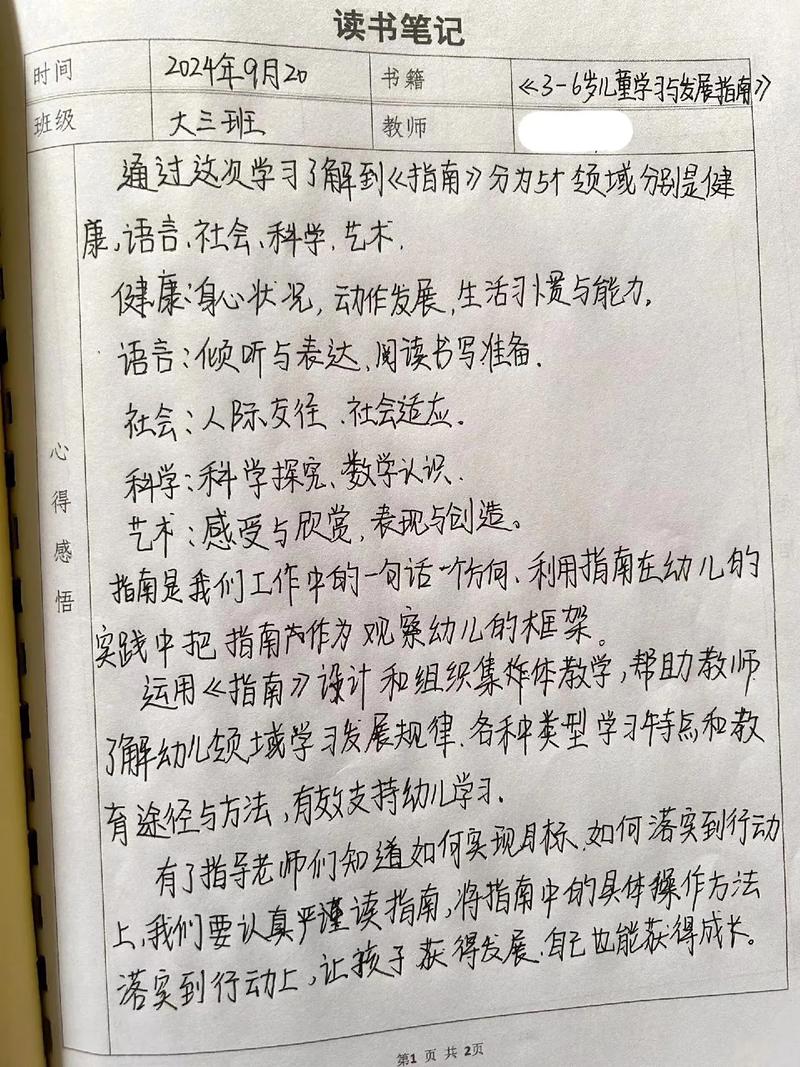 读书笔记
时间 2024年9月20 书籍 《3-6岁儿童学习与发展指南》
班级 大三班 教师
心得感悟
通过这次学习了解到《指南》分为5个领域分别是健
康、语言、社会、科学、艺术.
健康:身心状况,动作发展,生活习惯与能力。
语言:倾听与表达,阅读书写准备.
社会:人际友往、社会适应.
科学:科学探究、数学认识.
艺术:感受与欣赏,表现与创造。
指南是我们工作中的一句话一个方向、利用指南在幼儿的
实践中把指南作为观察幼儿的框架。
运用《指南》设计和组织集体教学,帮助教师
了解幼儿领域学习发展规律.各种类型学习特点和教
育途径与方法,有效支持幼儿学习.
有了指导老师们知道如何实现目标、如何落实到行动
上,我们要认真严谨读指南,将指南中的具体操作方法
落实到行动上,让孩子获得发展.自己也能获得成长。
第1页 共2页